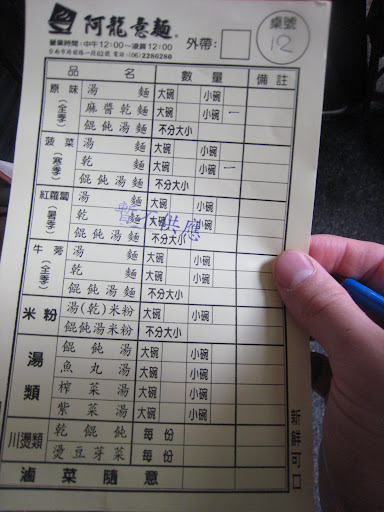 阿龍意麵
營業時間：中午12:00～凌晨12:00
(06)2286280
外帶：
桌號
12
品名 數量 備註
原味(全季) 湯麵 大碗 小碗
麻醬乾麵 大碗 小碗 一
餛飩湯麵 不分大小
菠菜(寒季) 湯麵 大碗 小碗
乾麵 大碗 小碗 一
餛飩湯麵 不分大小
紅蘿蔔(暑季) 湯麵 大碗 小碗
乾麵 大碗 小碗
餛飩湯麵 不分大小
暫不供應
牛蒡(全季) 湯麵 大碗 小碗
乾麵 大碗 小碗
餛飩湯麵 不分大小
米粉 湯(乾)米粉 大碗 小碗
餛飩湯米粉 不分大小
湯類 餛飩湯 大碗 小碗
魚丸湯 大碗 小碗
榨菜湯 大碗 小碗
紫菜湯 大碗 小碗
川燙類 乾餛飩 每份
燙豆芽菜 每份
滷菜隨意